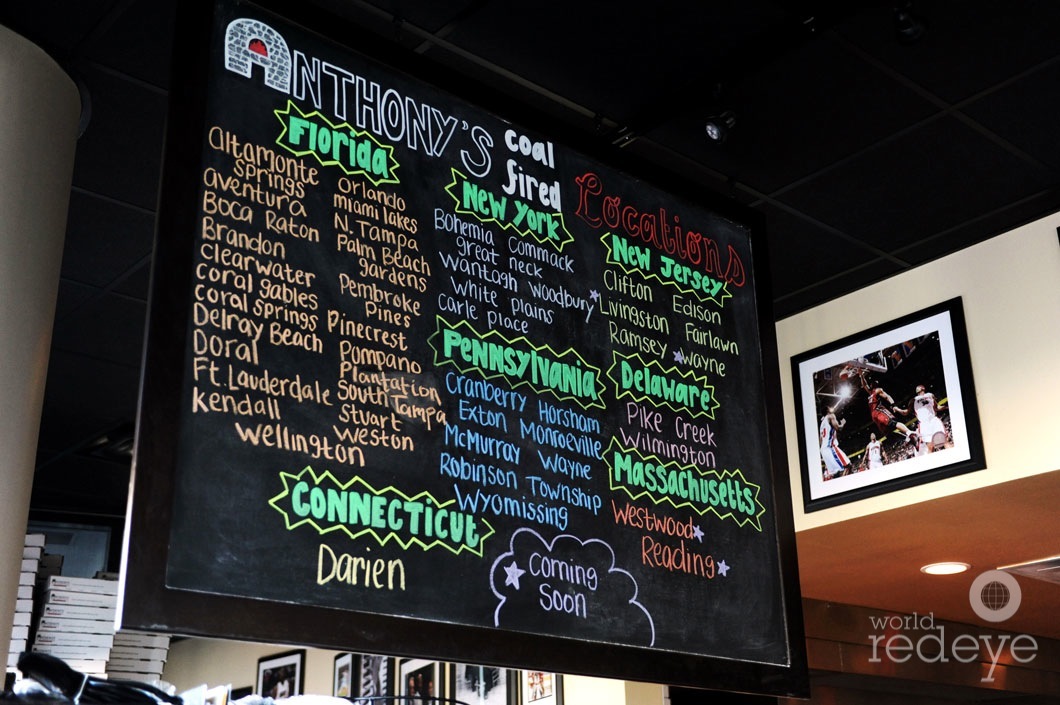 ANTHONY'S
coal
fired
Locations
Florida
Altamonte
Springs
aventura
Boca Raton
Brandon
Clearwater
coral gables
coral springs
Delray Beach
Doral
Ft. Lauderdale
Kendall
Wellington
Orlando
miami lakes
N. Tampa
Palm Beach
gardens
Pembroke
Pines
Pinecrest
Pompano
Plantation
South Tampa
Stuart
Weston
CONNECTICUT
Darien
New York
Bohemia Commack
great neck
Wantagh Woodbury
White plains
carle place
PENNSYLVANIA
Cranberry Horsham
Exton Monroeville
McMurray Wayne
Robinson Township
Wyomissing
Coming
Soon
New Jersey
Clifton Edison
Livingston Fairlawn
Ramsey Wayne
Delaware
Pike Creek
Wilmington
Massachusetts
Westwood
Reading
world
redeye